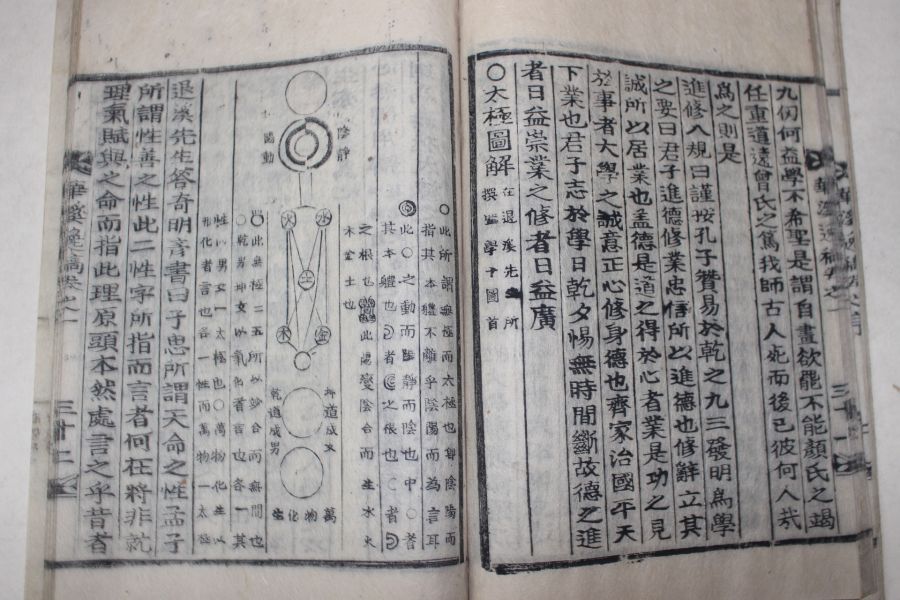 九仞何益學不希聖是謂自畫欲罷不能顔氏之竭
任重道遠曾氏之篤我師古人死而後已彼何人哉
爲之則是
進修八規曰謹按孔子贊易於乾之九三發明爲學
之要曰君子進德修業忠信所以進德也修辭立其
誠所以居業也盖德是道之得於心者業是功之見
於事者大學之誠意正心修身德也齊家治國平天
下業也君子志於學日乾夕惕無時間斷故德之進
者日益崇業之修者日益廣
○太極圖解
在退溪先生所
撰聖學十圖首
○此所謂無極而太極也卽陰陽而
指其本軆不雜乎陰陽而爲言耳
此○之動而陽靜而陰也
其本軆也
之根也 此陽變陰合而生水火
木金土也
○此無極二五所以妙合而無間也
○乾男坤女以氣化者言也各一其
性而男女一太極也○萬物化生以
形化者言也各一性而萬物一太極
陰靜
陽動
火 水
土
木 金
坤道成女
乾道成男
萬物化生
退溪先生答奇明彦書曰子思所謂天命之性孟子
所謂性善之性此二性字所指而言者何在將非就
理氣賦與之命而指此理原頭本然處言之乎昔者
三十二
三十一